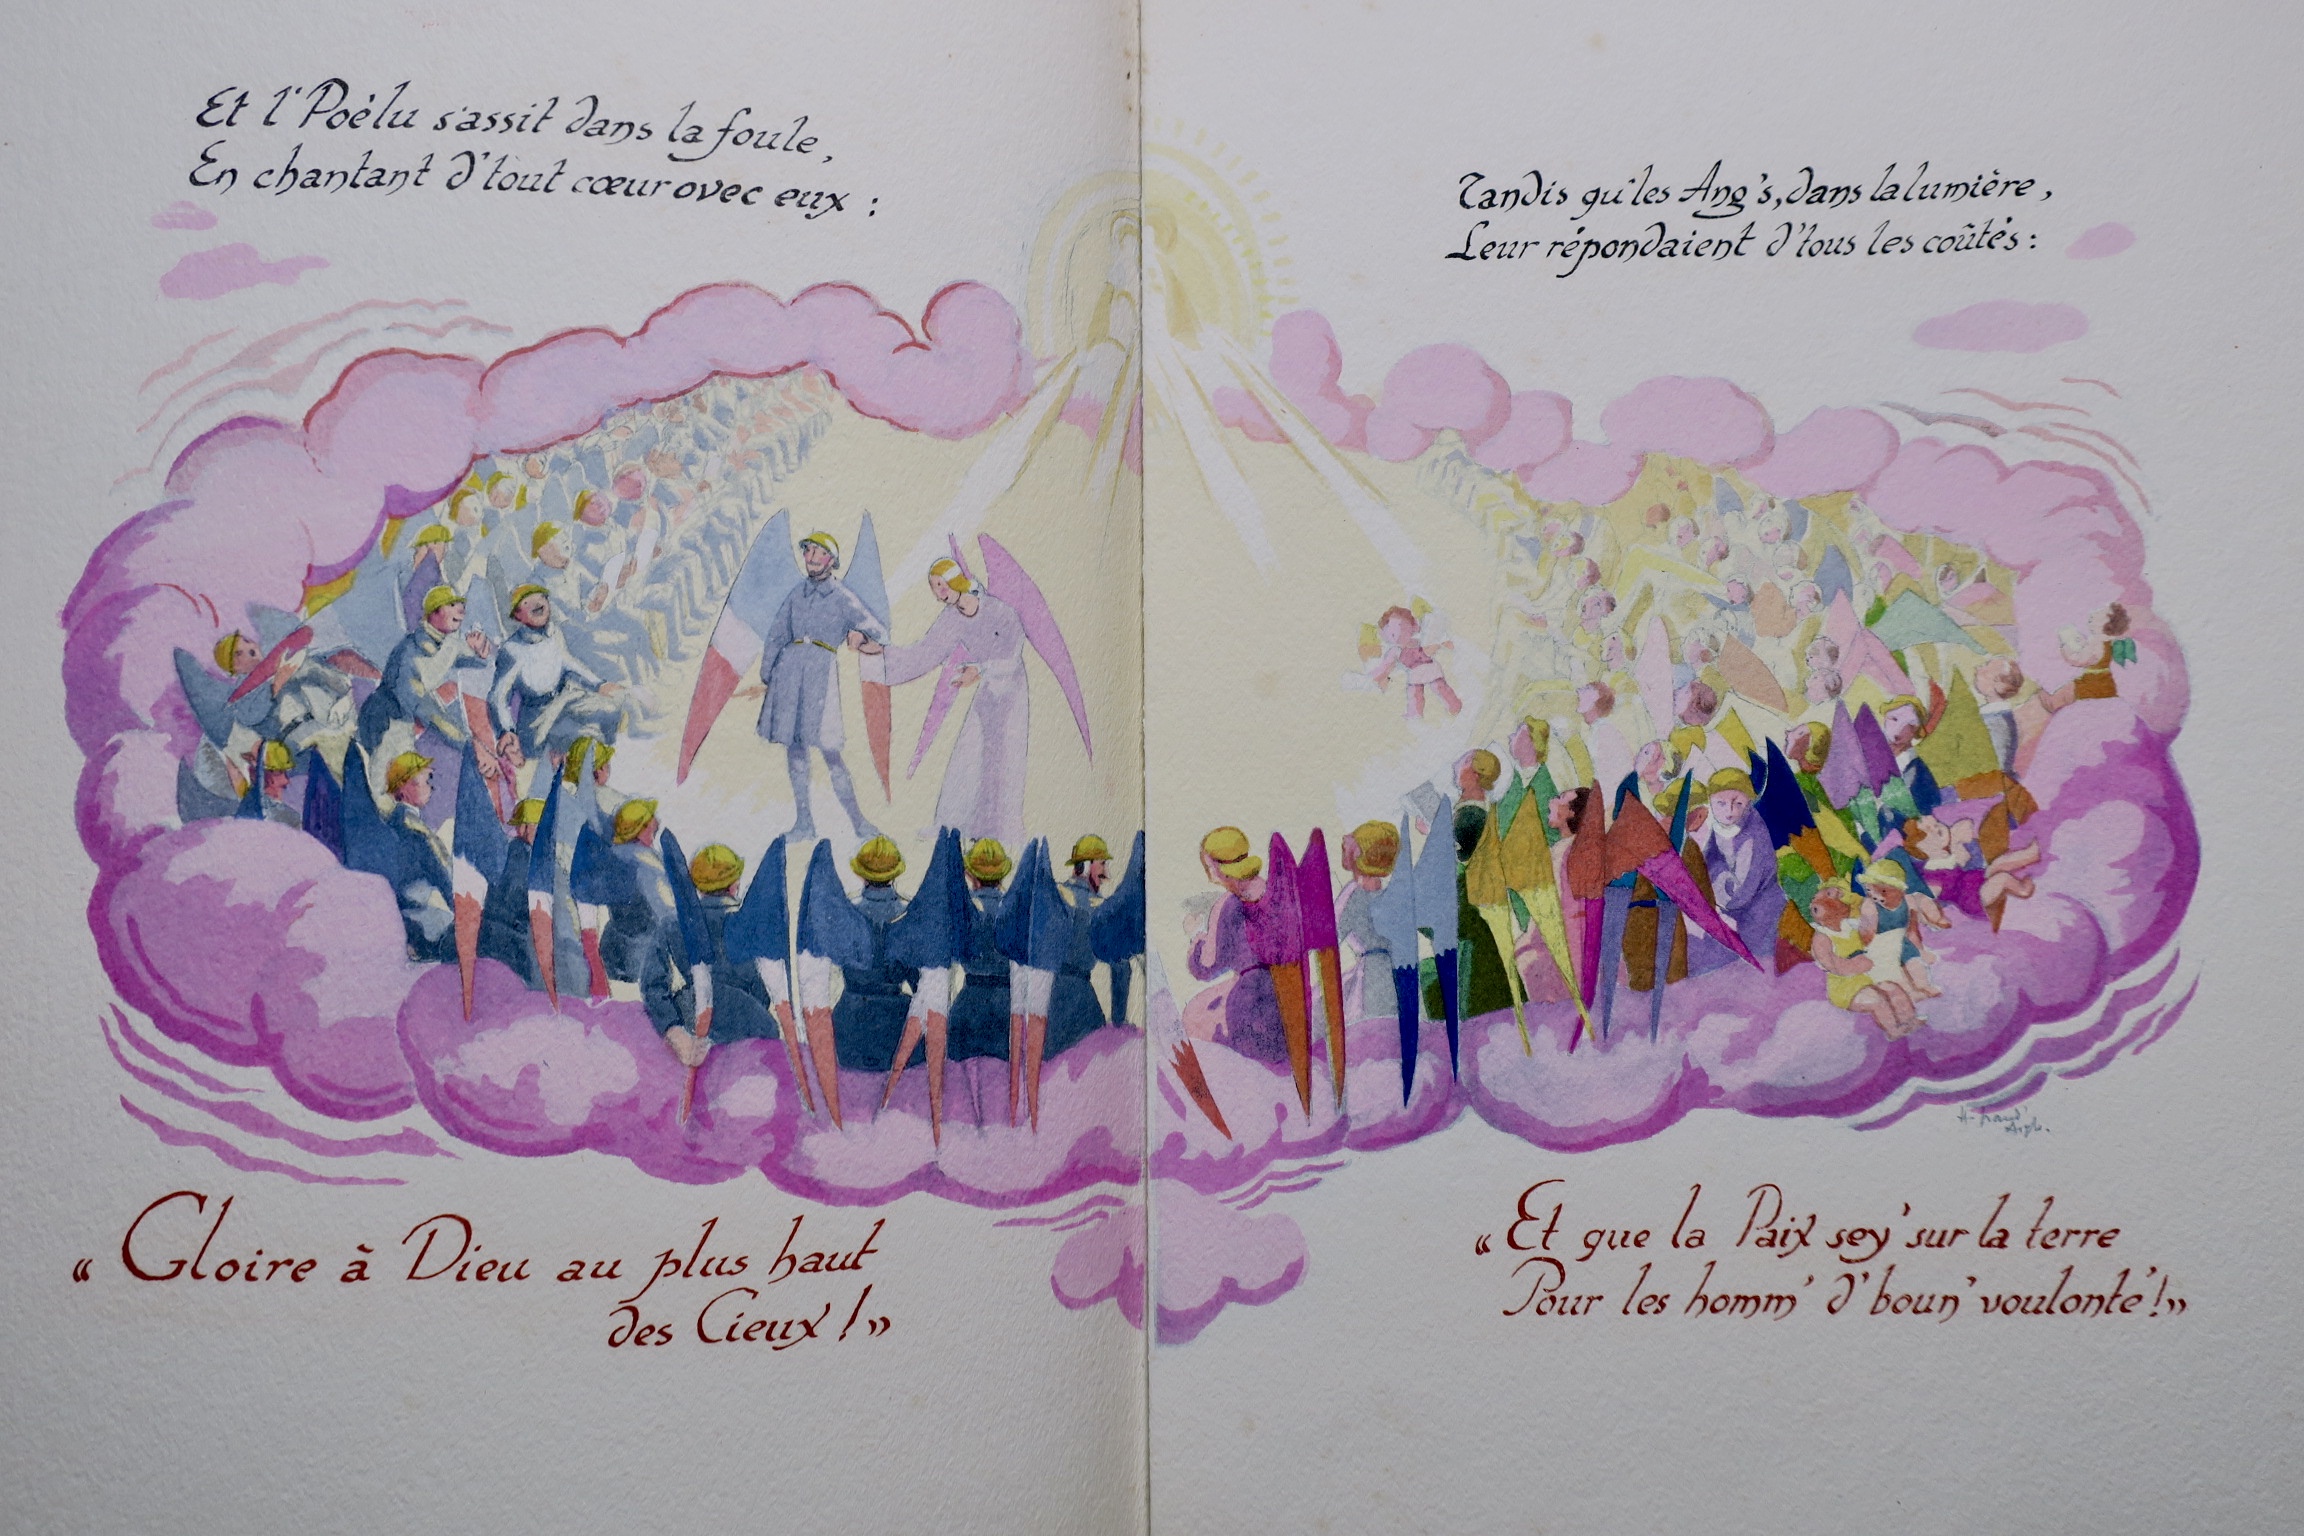 Et l' Poèlu s'assit dans la foule,
En chantant d'tout cœur ovec eux :
Tandis qu'les Ang's, dans la lumière,
Leur répondaient d'tous les coûtés :
« Gloire à Dieu au plus haut
des Cieux ! »
« Et que la Paix sey' sur la terre
Pour les homm' d' boun' voulonté ! »